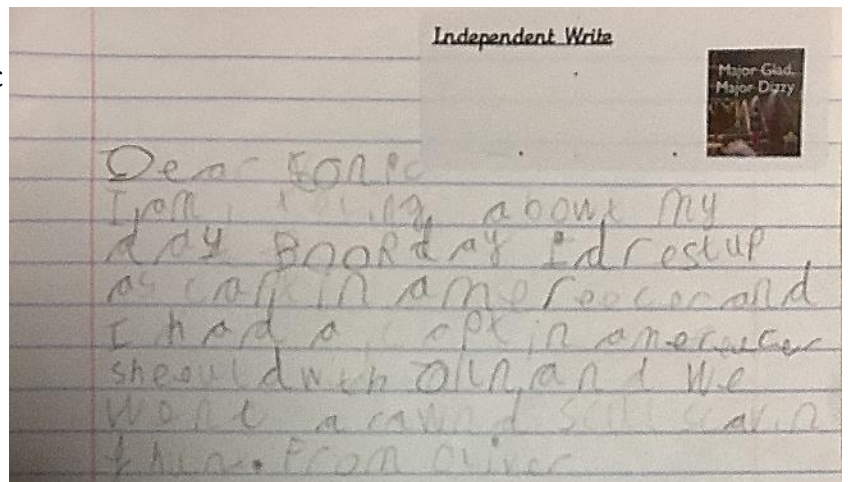 Independent Write
Major Glad,
Major Dizzy
Dear
I am about my
day Book day I drest up
as captin amereecer and
I had a captin amerecer
sheould with and we
wont arawnd scill
from oliver